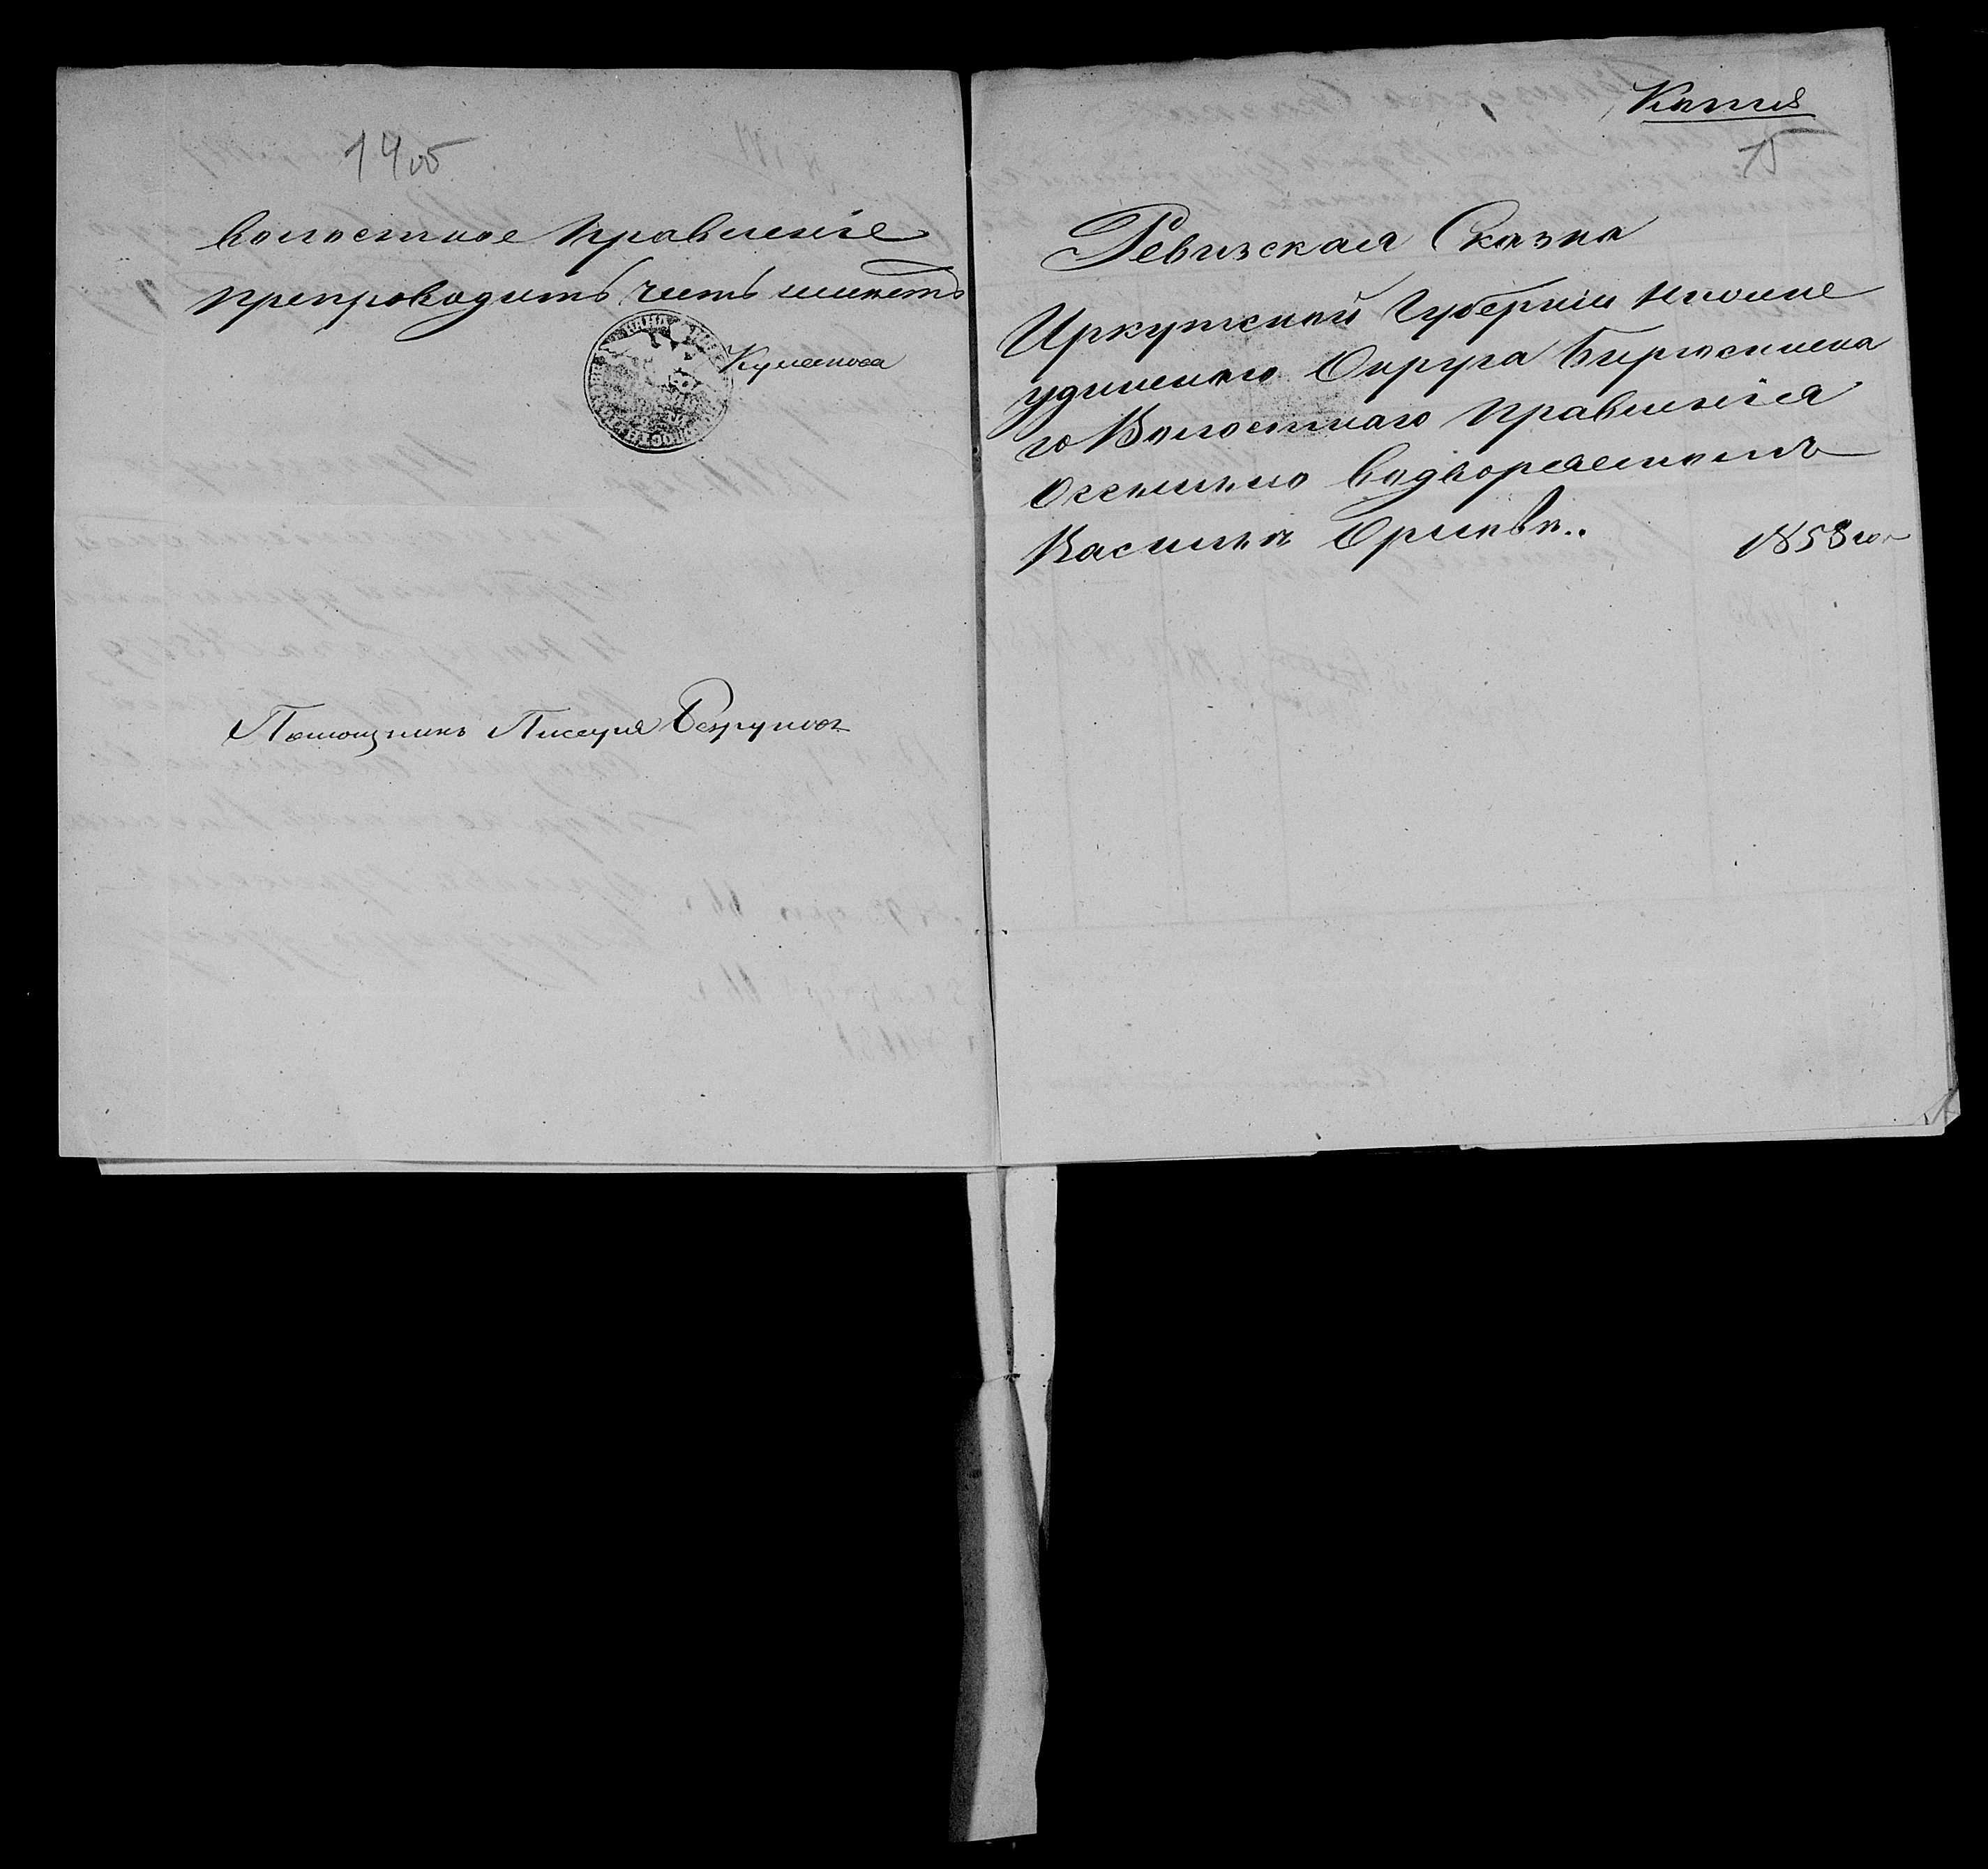 14об
волостное правленіе
препроводить честь имѣетъ
Кулакова
Помощникъ Писаря
Копия
15
Ревизская Сказка
Иркутской Губерніи Нижне
удинскаго Округа Бирюсинска
го Волостнаго правленія
о ссыльно водворяемомъ
Василии Орловѣ..
1858 го